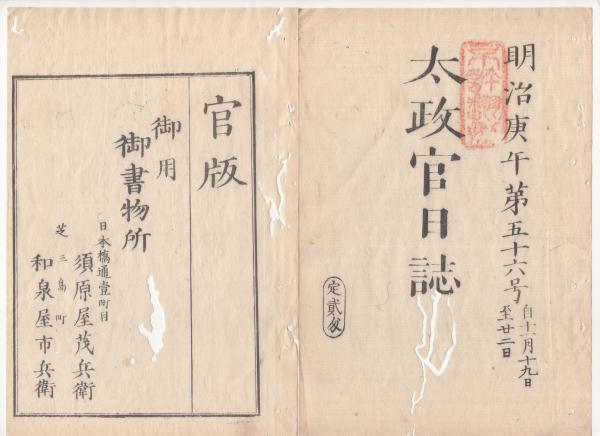 明治庚午第五十六号
自十一月十九日
至廿二日
太政官日誌
定貳匁
官版
御用
御書物所
日本橋通壹町目
須原屋茂兵衛
芝三島町
和泉屋市兵衛